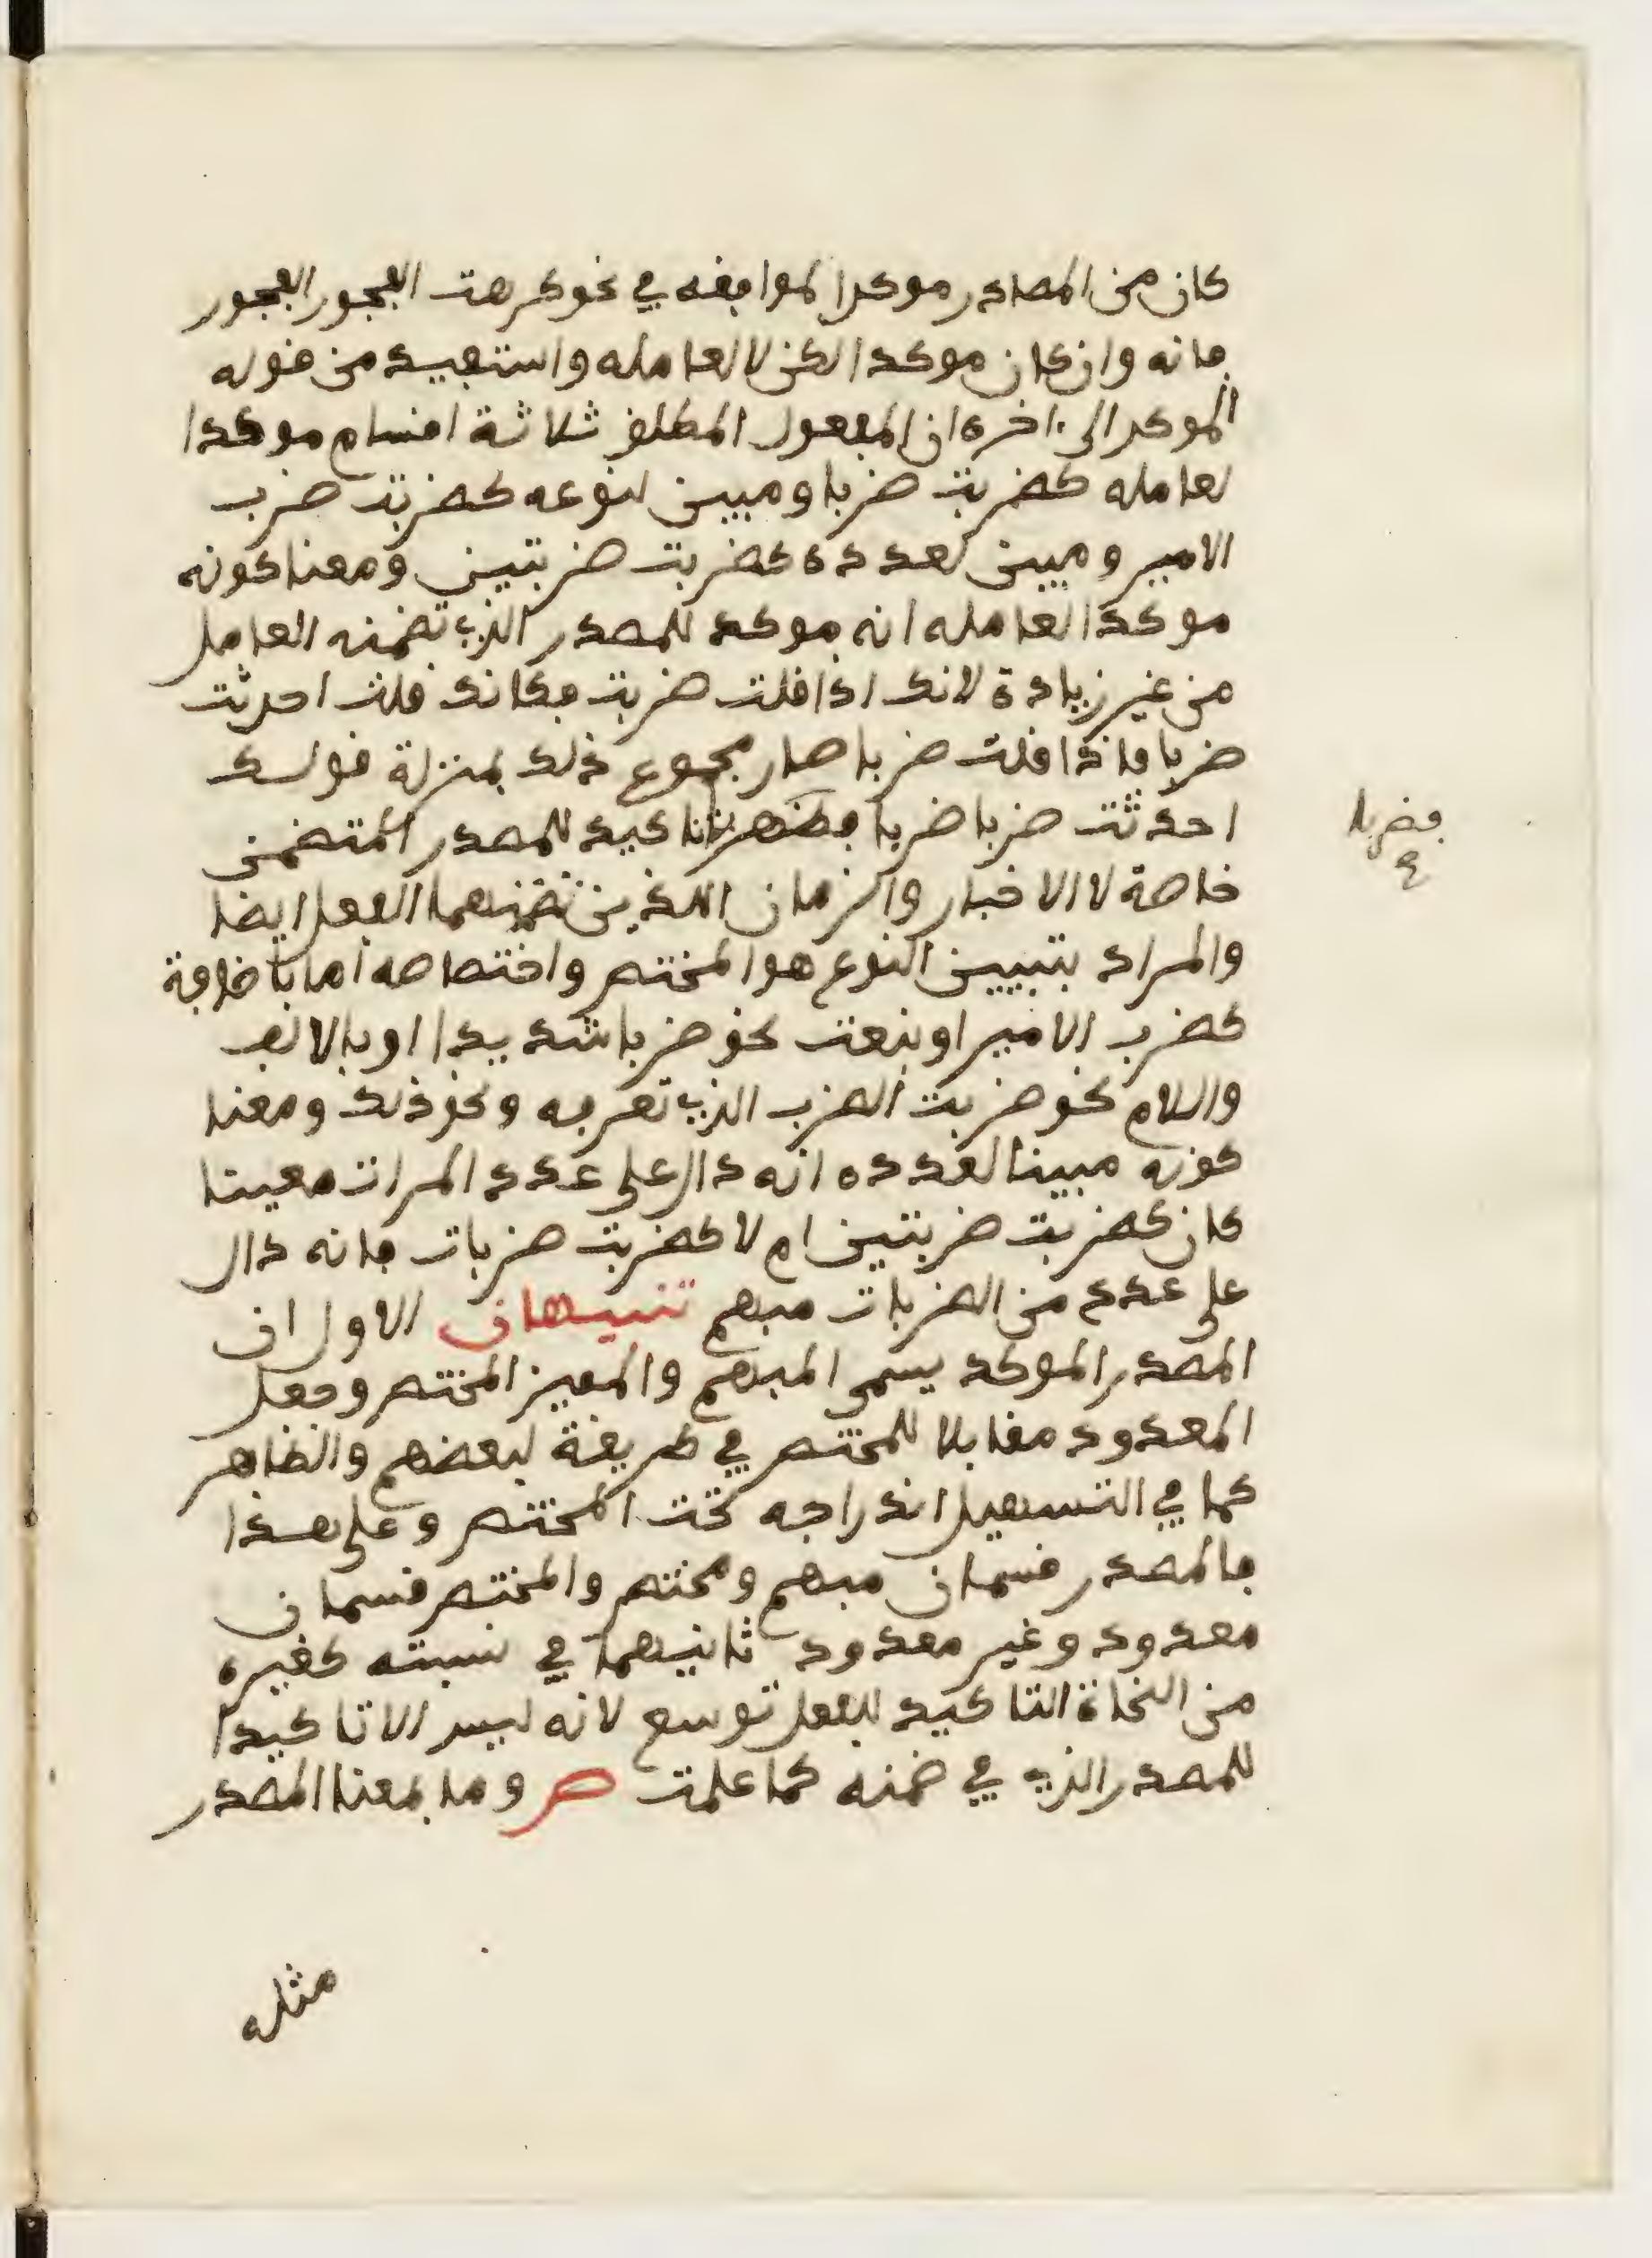 كان من المصادر موكدا لموافقه في نحو كرهت الفجور الفجور
فانه وان كان موكدا لكن لا لعامله واستفيد من قوله
الموكد الى ءاخره ان المفعول المطلق ثلاثة اقسام موكدا
لعامله كضربت ضربا ومبين لنوعه كضربت ضرب
الامير ومبين لعدده كضربت ضربتين ومعنا كونه
موكدا لعامله انه موكد للمصدر الذي تضمنه العامل
من غير زيادة لانك اذا قلت ضربت فكانك قلت احدثت
ضربا فاذا قلت ضربا صار مجموع ذلك بمنزلة قولك
احدثت ضربا ضربا فظهر تاكيد للمصدر المتضمن
فضربا
ع
خاصة لا الاخبار والزمان الذين تضمنهما الفعل ايضا
والمراد بتبيين النوع هو المختص واختصاصه اما باضافة
كضرب الامير او بنعت نحو ضربا شديدا او بالالف
واللام نحو ضربت الضرب الذي تعرفه ونحو ذلك ومعنا
كونه مبينا لعدده انه دال على عدد المرات معينا
كان كضربت ضربتين ام لا كضربت ضربات فانه دال
على عدد من الضربات مبهم تنبيهان الاول ان
المصدر الموكد يسمى المبهم والمبين المختص وجعل
المعدود مقابلا للمختص في طريقة لبعضهم والظاهر
كما في التسهيل اندراجه تحت المختص وعلى هذا
فالمصدر قسمان مبهم ومختص والمختص قسمان
معدود وغير معدود ثانيهما في نسبته كغيره
من النحاة التاكيد للفعل توسع لانه ليس الا تاكيدا
للمصدر الذي في ضمنه كما علمت ص وما بمعنا المصدر
مثله